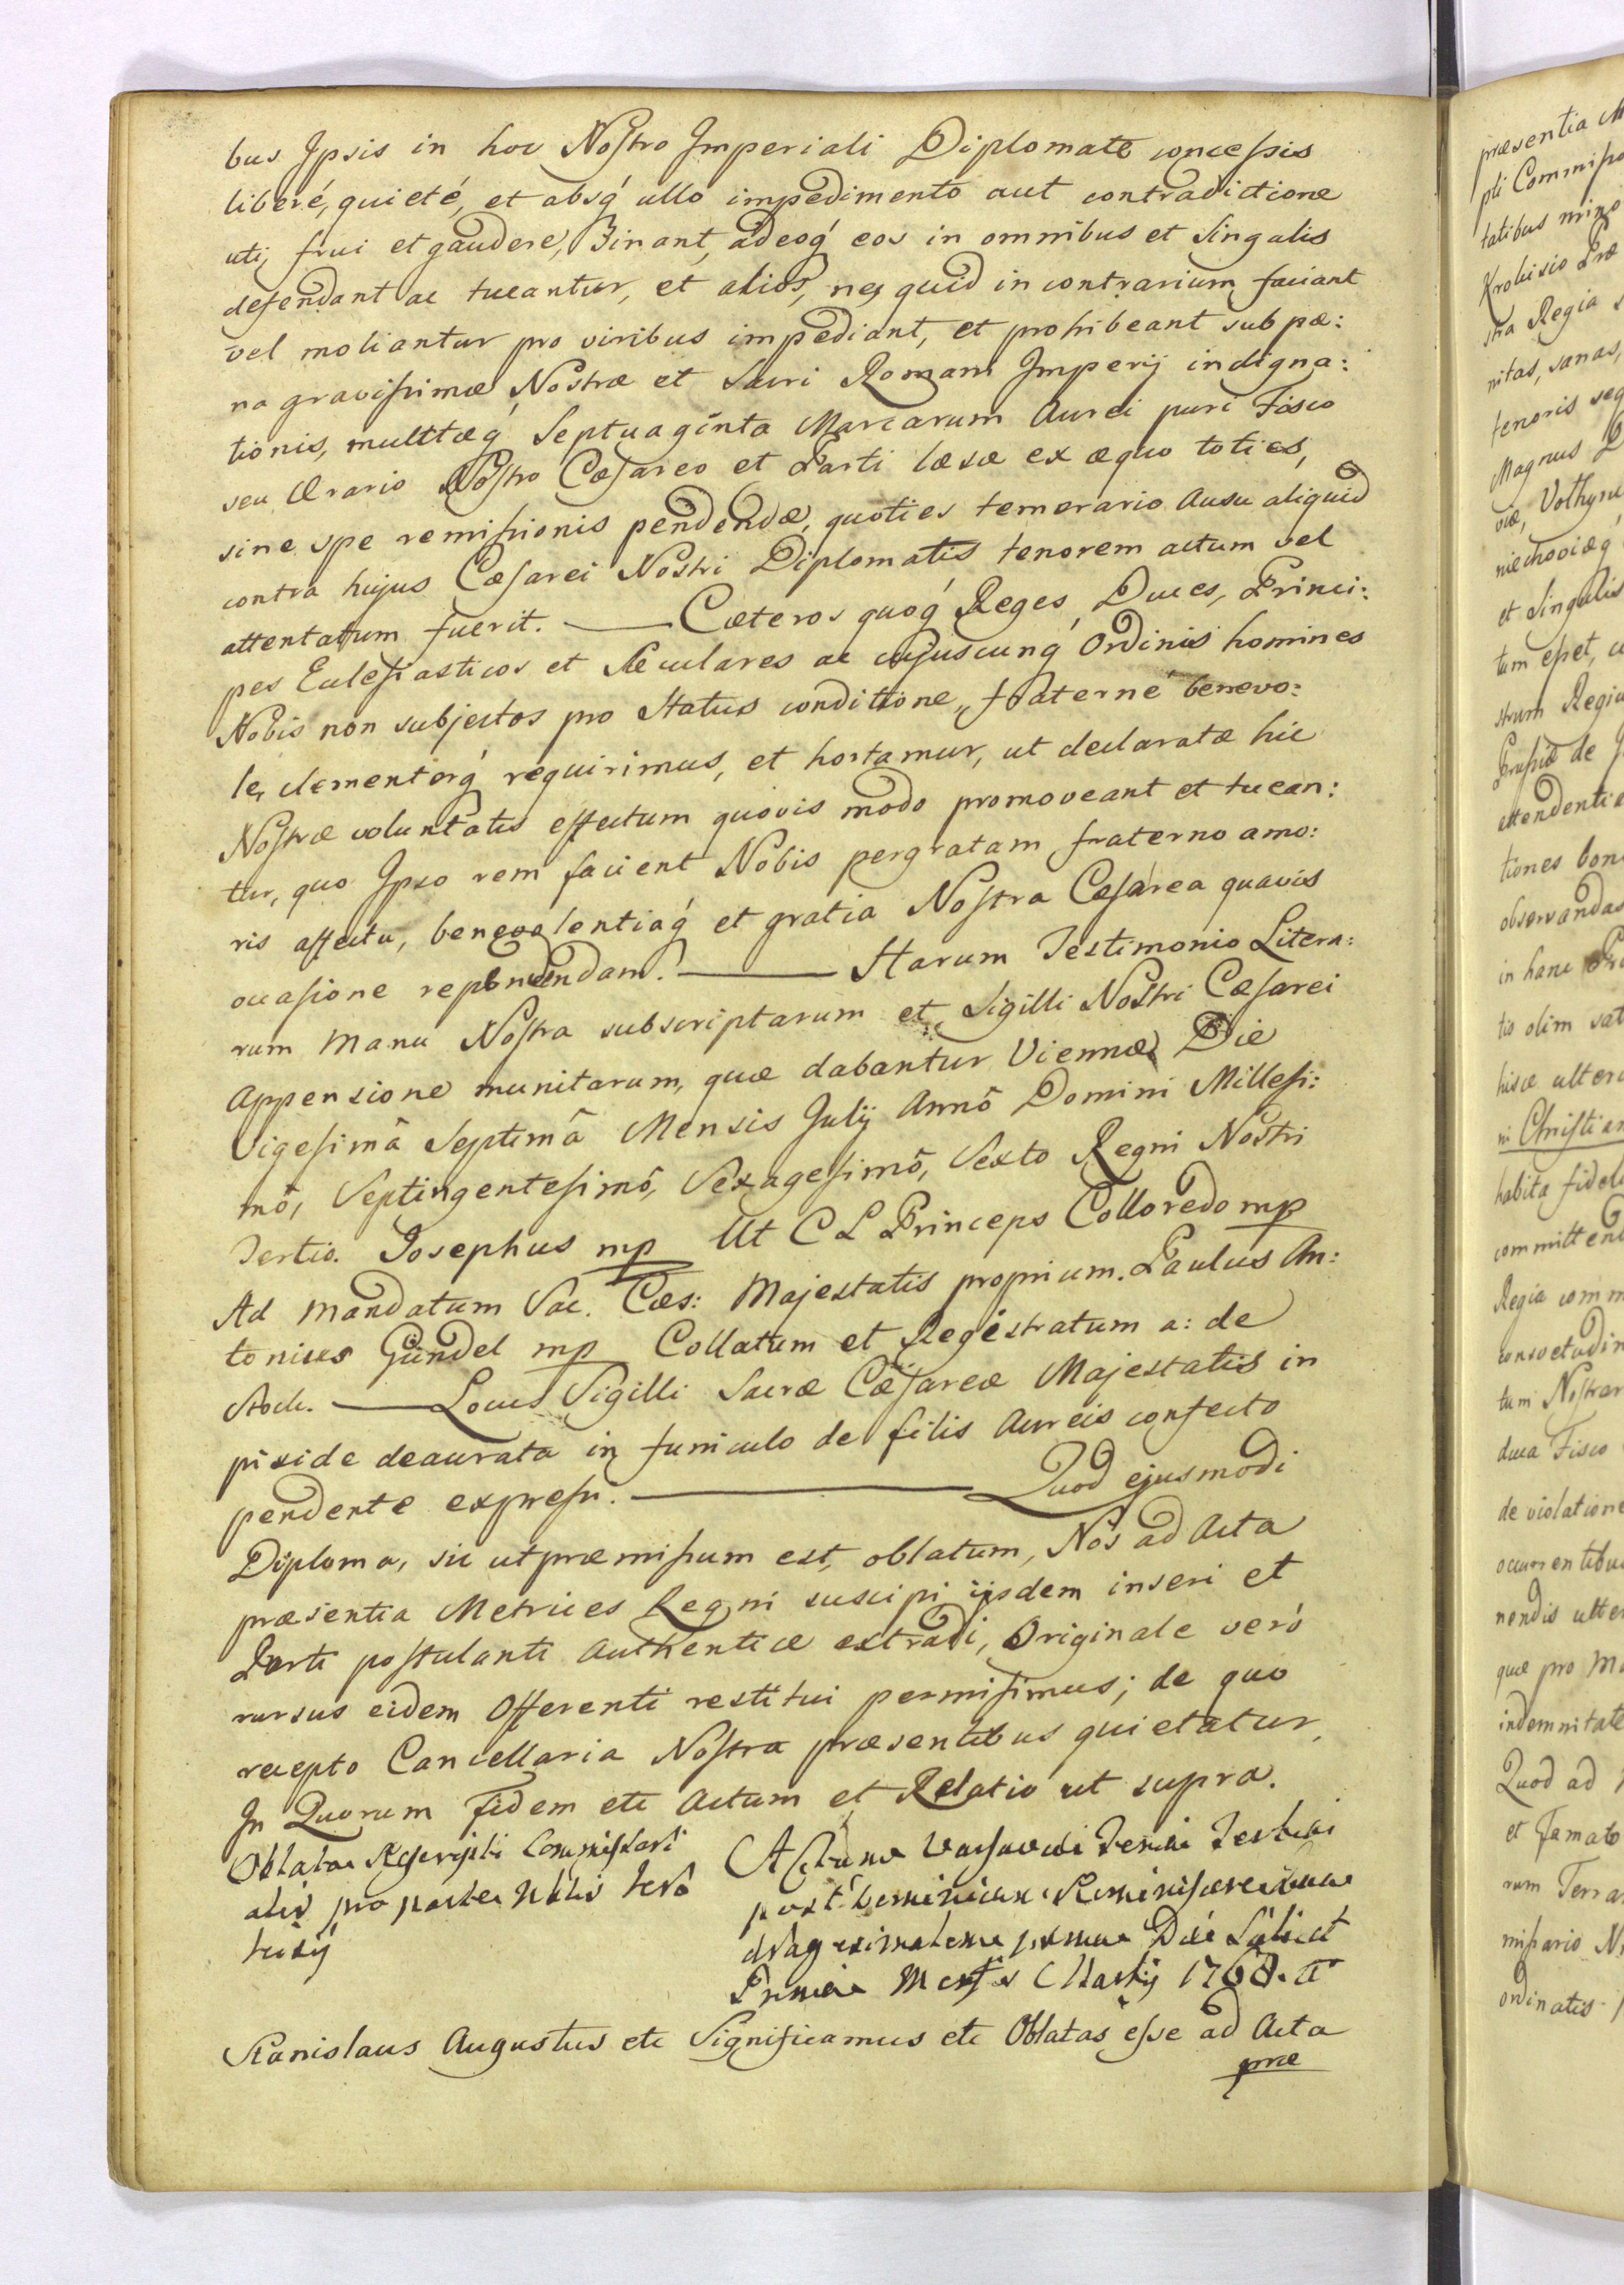 bus Ipsis in hoc Nostro Imperiali Diplomate concessis
liberé, quieté, et absq́ ullo impedimento aut contradictione
uti, frui et gaudere, Sinant, adeoq́ eos in omnibus et Singulis
defendant ac tueantur, et alios, ne quid in contrarium faciant
vel moliantur pro viribus impediant, et prohibeant sub pæ:
na gravissimæ Nostræ et Sacri Romani Imperij indigna:
tionis, multtæq́ Septuaginta Marcarum Auri puri Fisco
seu Ærario Nostro Cæsareo et Parti læsæ ex æquo toties,
sine spe remissionis pendendæ, quoties temerario Ausu aliquid
contra hujus Cæsarei Nostri Diplomatis tenorem actum vel
attentatum fuerit. — Cæteros quoq́ Reges, Duces, Princi:
pes Eclesiasticos et Sæculares ac cujuscunq́ Ordinis homines
Nobis non subjectos pro Status conditione, fraterné benevo:
le, clementerq́ requirimus, et hortamur, ut declaratæ hic
Nostræ voluntatis effectum quovis modo promoveant et tuean:
tur, quo Ipso rem facient Nobis pergratam fraterno amo:
ris affectu, benevolentiaq́ et gratia Nostra Cæsárea quavis
occasione rependendam. — Harum Testimonio Litera:
rum Manu Nostra subscriptarum et Sigilli Nostri Cæsarei
Appensione munitarum, quæ dabantur Viennæ Die
Vigesimâ Septimâ Mensis Julij Annô Domini Millesi:
mô, Septingentesimô, Sexagesimô, Sexto Regni Nostri
Tertio. Josephus mp Ut C L Princeps Colloredo mp
Ad Mandatum Sac. Cæs: Majestatis proprium. Paulus An:
tonius Gündel mp Collatum et Regéstratum a: de
Stock. — Locus Sigilli Sacræ Cæsareæ Majestatis in
pixide deaurata in funiculo de filis Aureis confecto
pendente expressi. — Quod ejusmodi
Diploma, sic ut præmissum est, oblatum, Nos ad Acta
præsentia Metrices Regni suscipi, ijsdem inseri et
Parti postulanti Authentice extradi, Originale veró
rursus eidem Offerenti restitui permisimus; de quo
recepto Cancellaria Nostra præsentibus quietatur,
In Quorum fidem etc Actum et Relatio ut supra.
Oblata Rescripti Commissari
alis pro parte Nblis
Actum Varsaviæ Feria Tertia
post Dominicam Reminiscere
dragesimalem Die Scilicet
Prima Mensis Martij 1768.
Stanislaus Augustus etc Significamus etc Oblatas esse ad Acta
præ